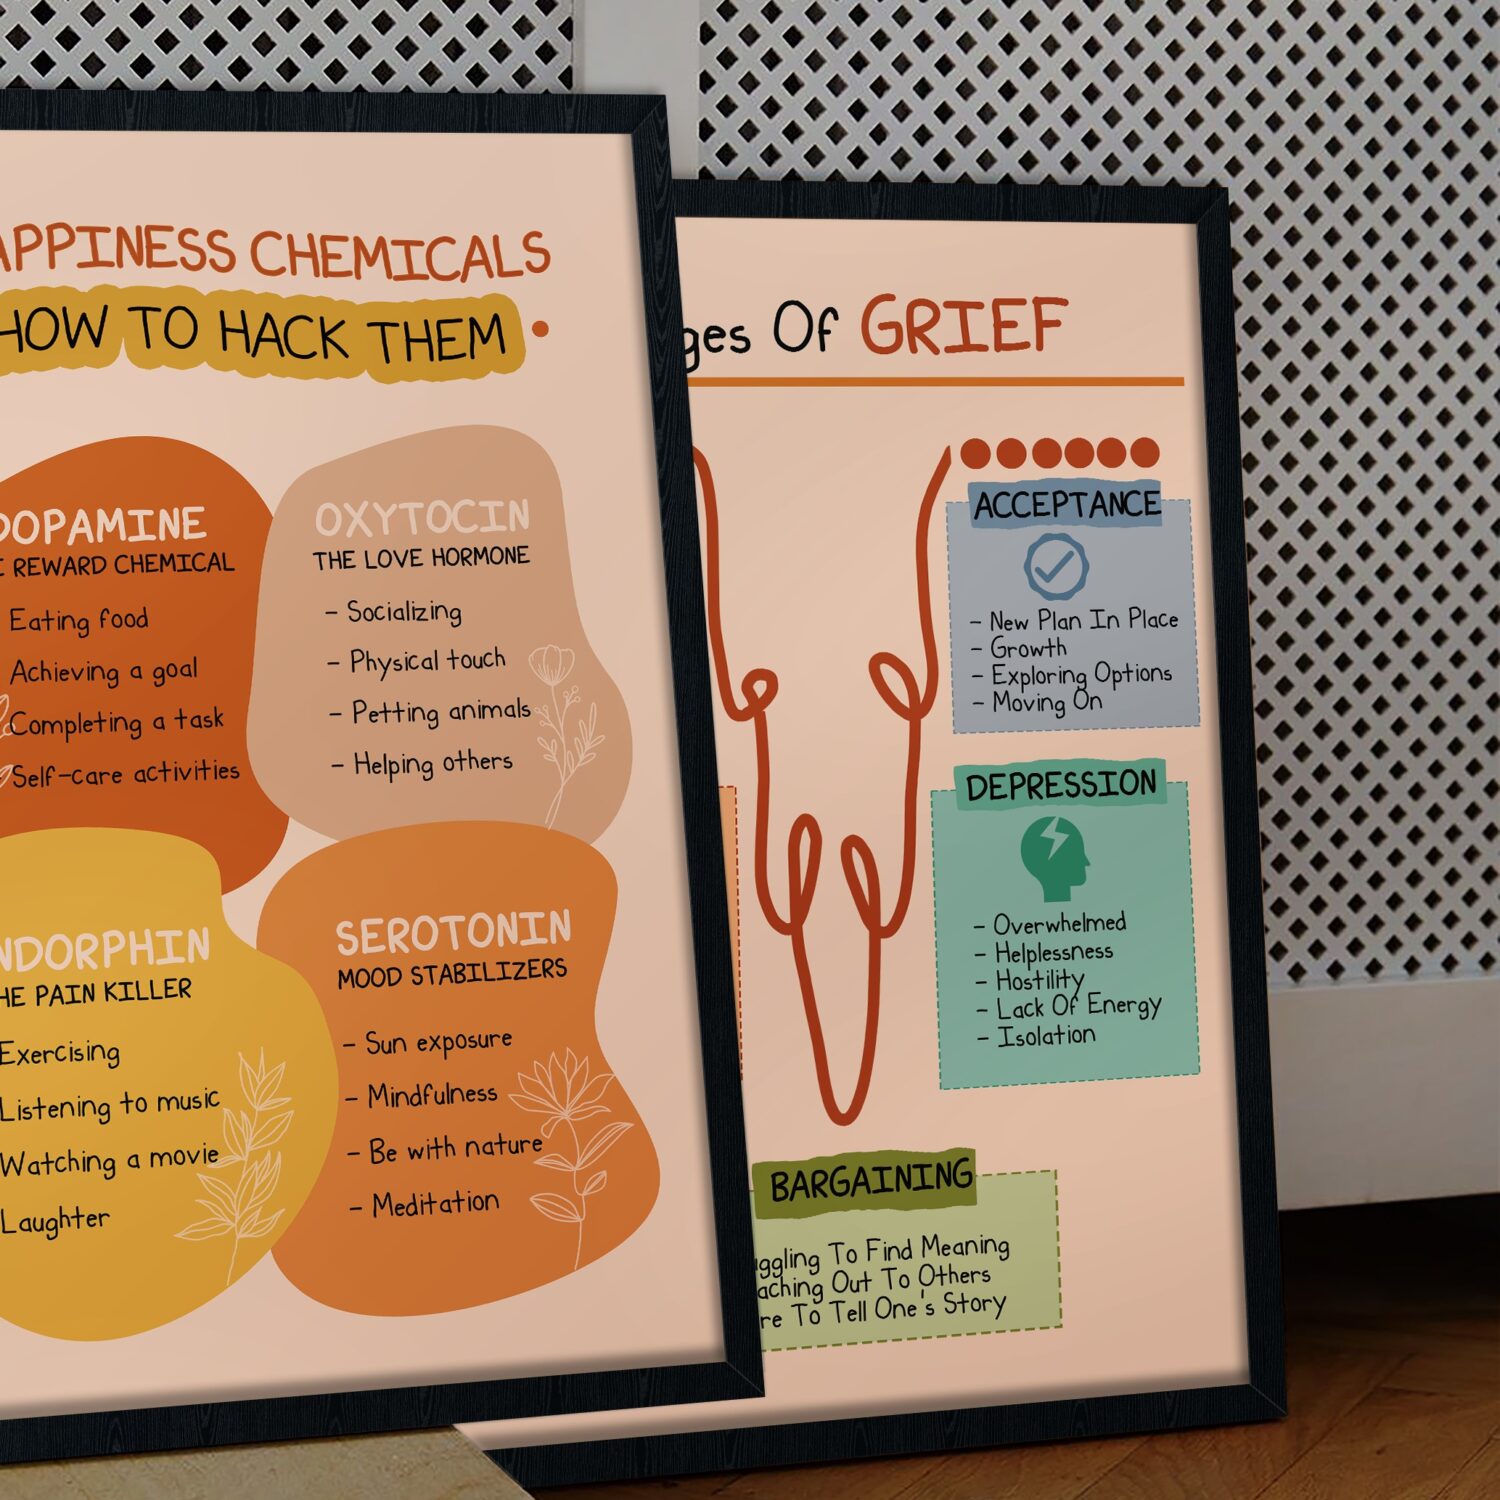 CHEMICALS
HOW TO HACK THEM
DOPAMINE
REWARD CHEMICAL
Eating food
Achieving a goal
Completing a task
Self-care activities
OXYTOCIN
THE LOVE HORMONE
- Socializing
- Physical touch
- Petting animals
- Helping others
PAIN KILLER
Exercising
Listening to music
Watching a movie
Laughter
SEROTONIN
MOOD STABILIZERS
- Sun exposure
- Mindfulness
- Be with nature
- Meditation
Of GRIEF
ACCEPTANCE
- New Plan In Place
- Growth
- Exploring Options
- Moving On
DEPRESSION
- Overwhelmed
- Helplessness
- Hostility
- Lack Of Energy
- Isolation
BARGAINING
To Find Meaning
Out To Others
To Tell One's Story